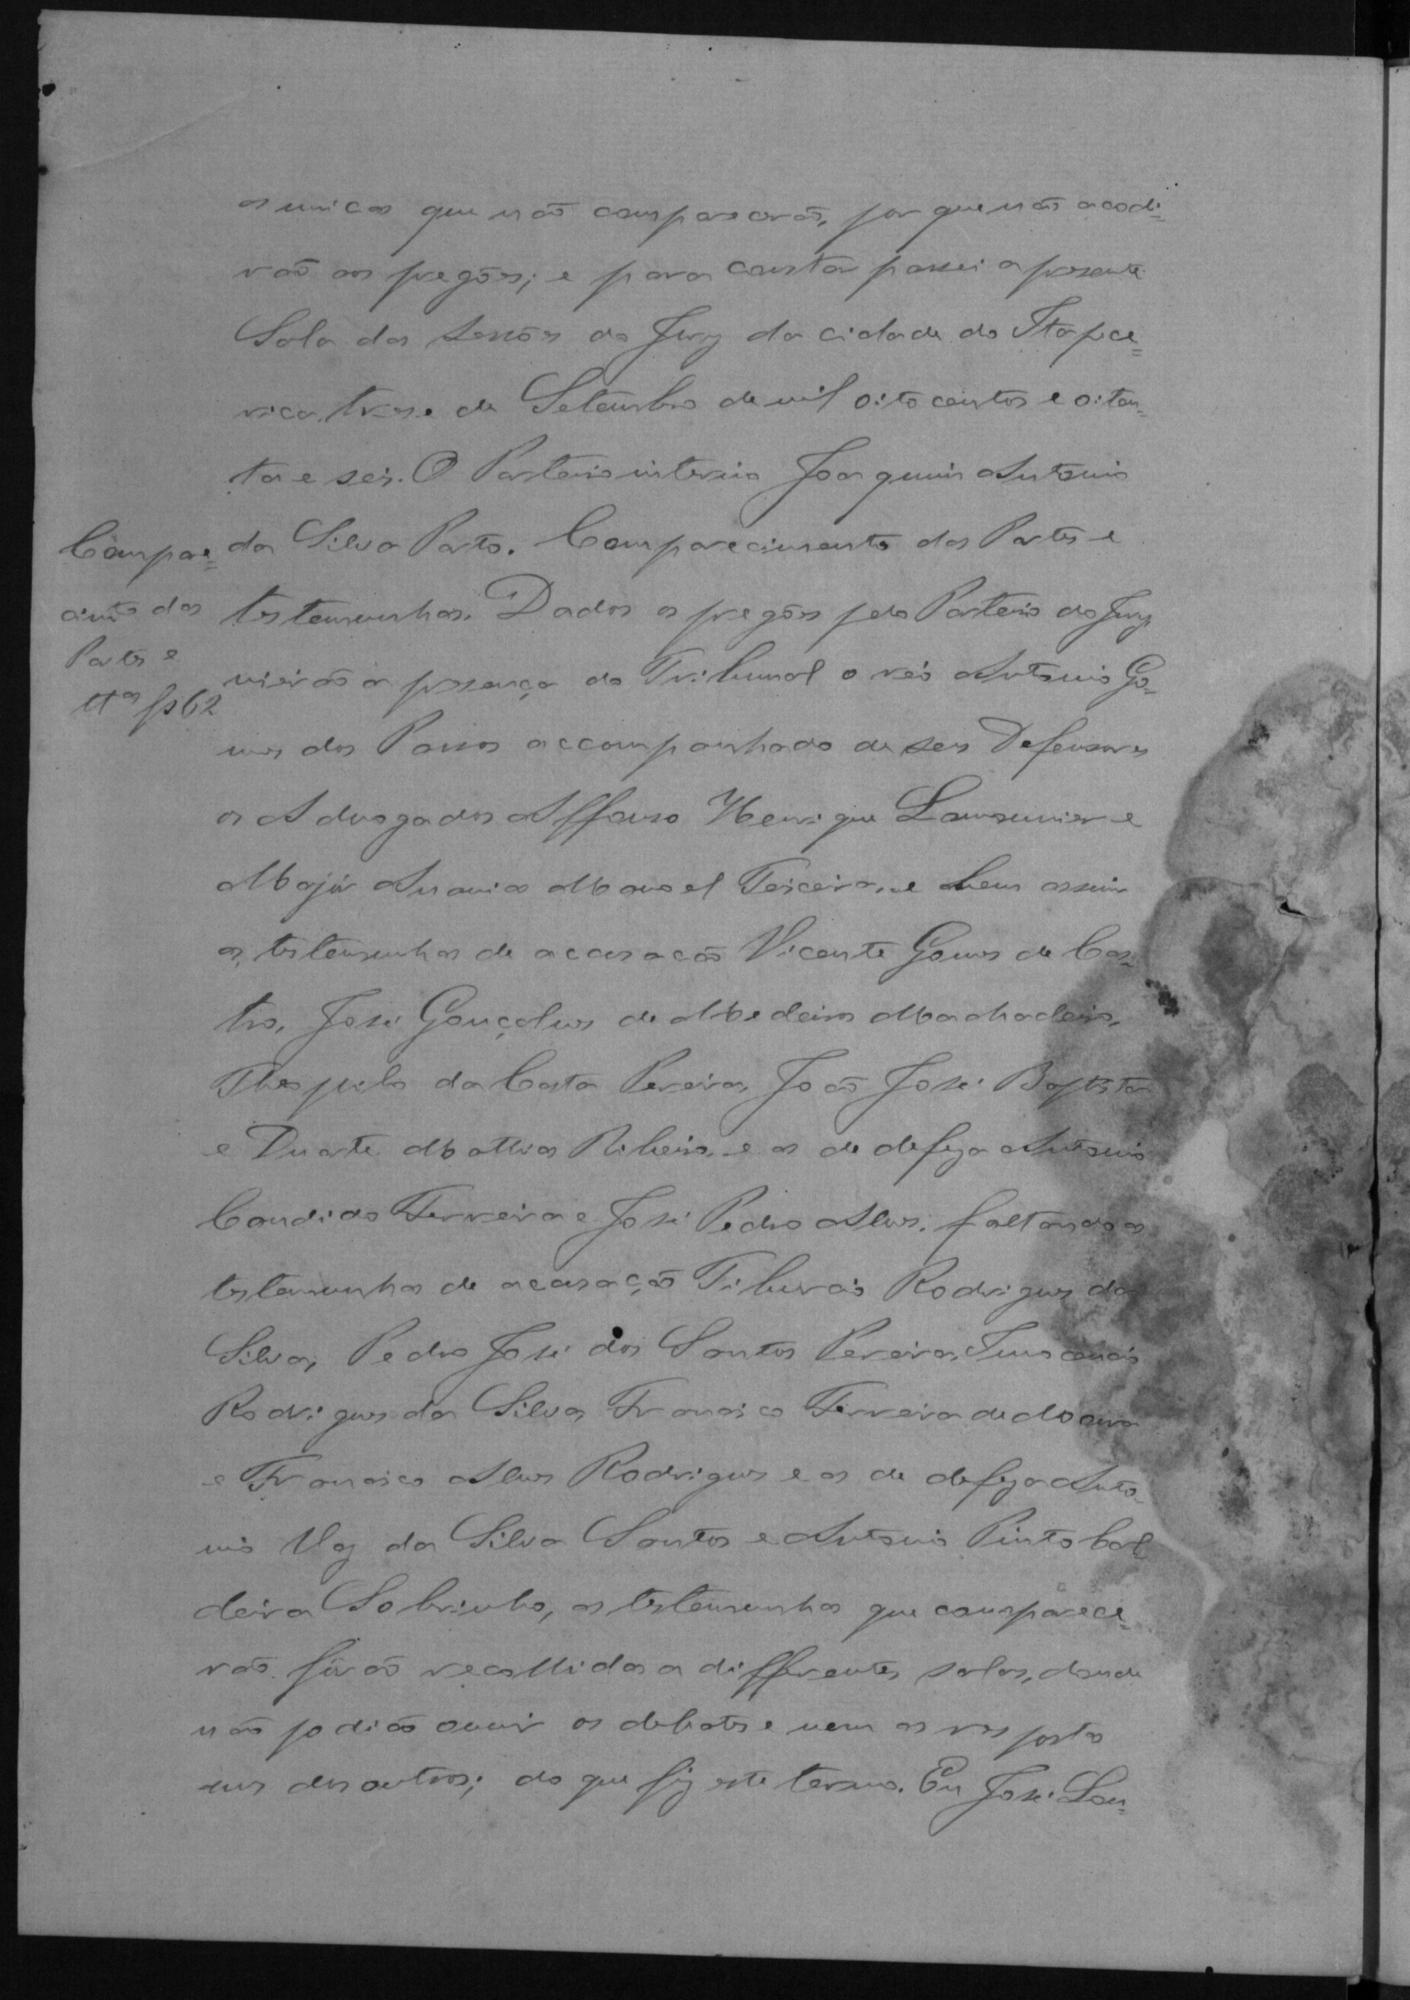 os unicos que não comparecerão, por que não acodi=
rão aos pregões; e para constar passei a presente
Sala das Sessões do Jury da cidade do Itapece=
rica, treze de Setembro de mil oito centos e oiten=
ta e seis. O Porteiro interino Joaquim Antonio
da Silva Porto. Comparecimento das Partes e
Compare=
cimto das
Partes e
ttas fs 62
testemunhas. Dados os pregões pelo Porteiro do Jury
vierão a presença do Tribunal o reo Antonio Go=
mes dos Passos accompanhado de seus Defensores
os Advogados Affonso Henrique Lamounier e
Major Manoel Teixeira, e bem assim
as testemunhas de accusacão Vicente Gomes de Cas=
tro, José Gonçalves de Medeiros Machadeiro,
Theophilo da Costa Pereira, João José Baptista
e Duarte Mathias Ribeiro, e as de defeza Antonio
Candido Ferreira e José Pedro Alves. faltando as
testemunhas de accusação Tiburcio Rodrigues da
Silva, Pedro José dos Santos Pereira, Innocencio
Rodrigues da Silva, Francisco Ferreira de Moura
e Francisco Alves Rodrigues e as de defeza Anto=
nio Vaz da Silva Santos e Antonio Pinto Cal
deira Sobrinho, as testemunhas que comparece=
rão. forão recolhidas a differentes salas, donde
não podião ouvir os debates e nem as resposta
umas dos outros; do que fiz este termo. Eu José Lou=